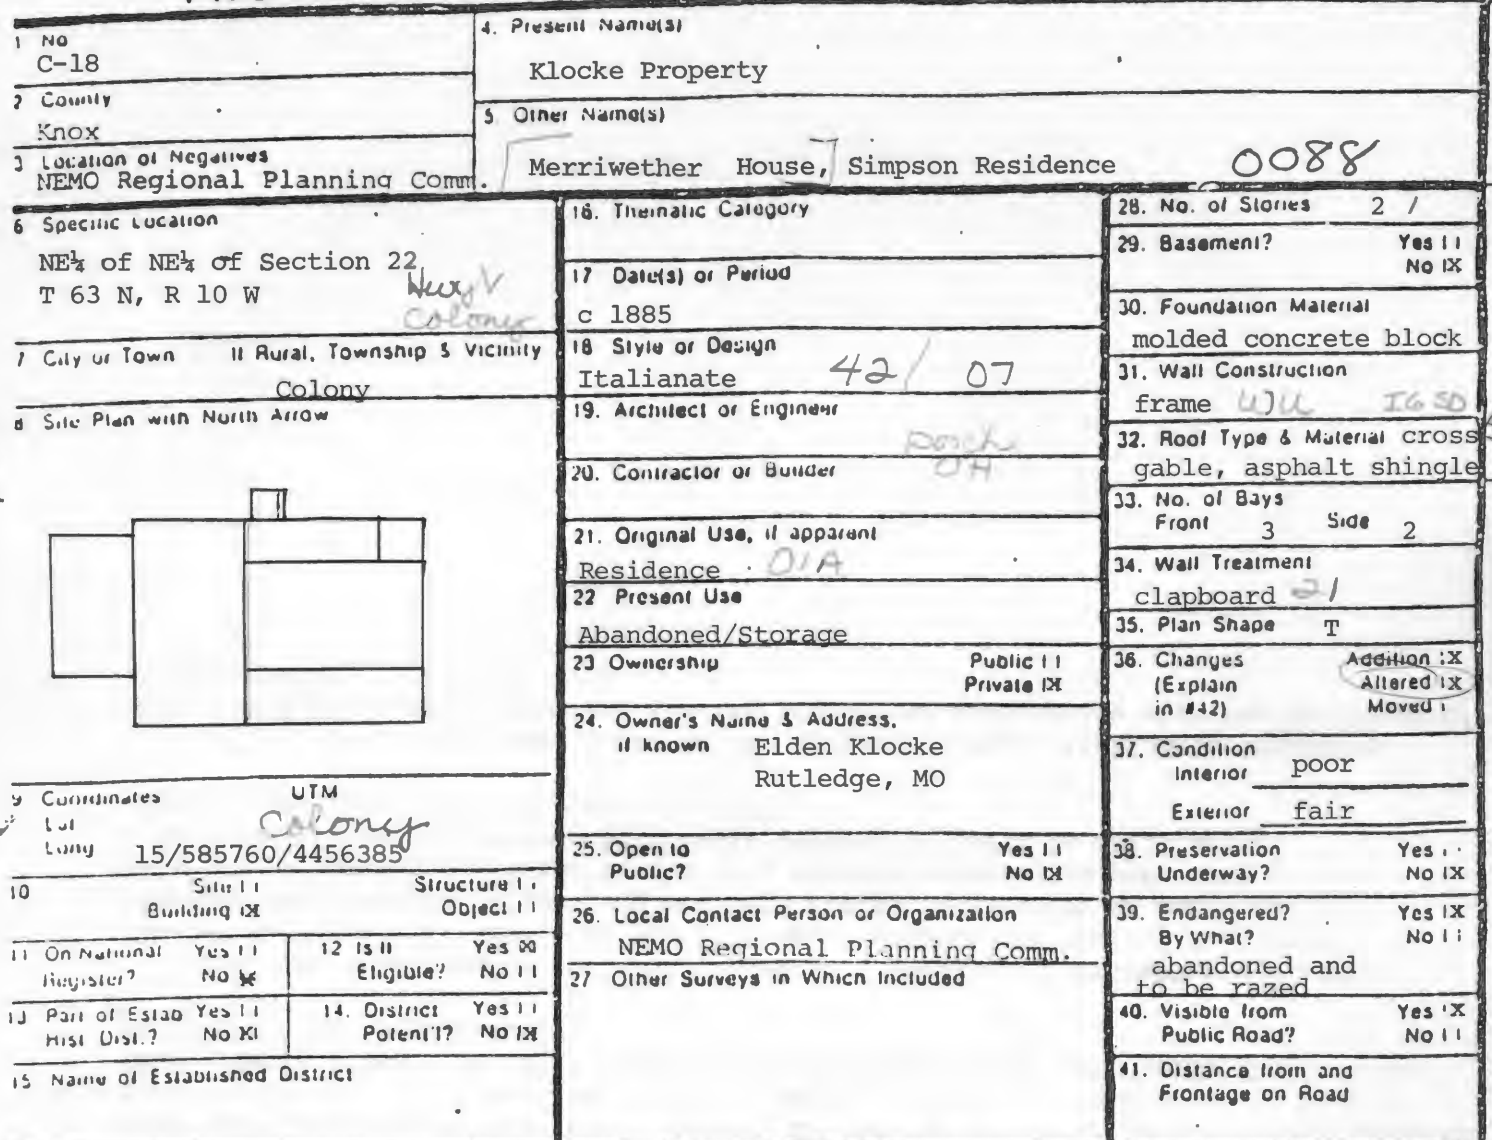 1 No
C-18
2 County
Knox
3 Location of Negatives
NEMO Regional Planning Comm.
4. Present Name(s)
Klocke Property
5. Other Name(s)
Merriwether House, Simpson Residence 0088
6 Specific Location
NE¼ of NE¼ of Section 22
T 63 N, R 10 W
Hwy V
Colony
7 City or Town If Rural, Township & Vicinity
Colony
8 Site Plan with North Arrow
9 Coordinates UTM
Lat
Long
Colony
15/585760/4456385
10 Site | | Structure | |
Building |X| Object | |
11 On National Register? Yes | | No |X|
12 Is It Eligible? Yes |X| No | |
13 Part of Estab Hist Dist.? Yes | | No |X|
14. District Potent'l? Yes | | No |X|
15 Name of Established District
16. Thematic Category
17 Date(s) or Period
c 1885
18 Style or Design
Italianate 42/ 07
19. Architect or Engineer
porch
OA
20. Contractor or Builder
21. Original Use, if apparent
Residence 01A
22 Present Use
Abandoned/Storage
23 Ownership Public | |
Private |X|
24. Owner's Name & Address,
if known Elden Klocke
Rutledge, MO
25. Open to Yes | |
Public? No |X|
26. Local Contact Person or Organization
NEMO Regional Planning Comm.
27 Other Surveys in Which Included
28. No. of Stories 2 /
29. Basement? Yes | |
No |X|
30. Foundation Material
molded concrete block
31. Wall Construction
frame
32. Roof Type & Material cross
gable, asphalt shingle
33. No. of Bays
Front 3 Side 2
34. Wall Treatment
clapboard 21
35. Plan Shape T
36. Changes Addition |X|
(Explain Altered |X|
in #42) Moved | |
37. Condition
Interior poor
Exterior fair
38. Preservation Yes | |
Underway? No |X|
39. Endangered? Yes |X|
By What? No | |
abandoned and
to be razed
40. Visible from Yes |X|
Public Road? No | |
41. Distance from and
Frontage on Road